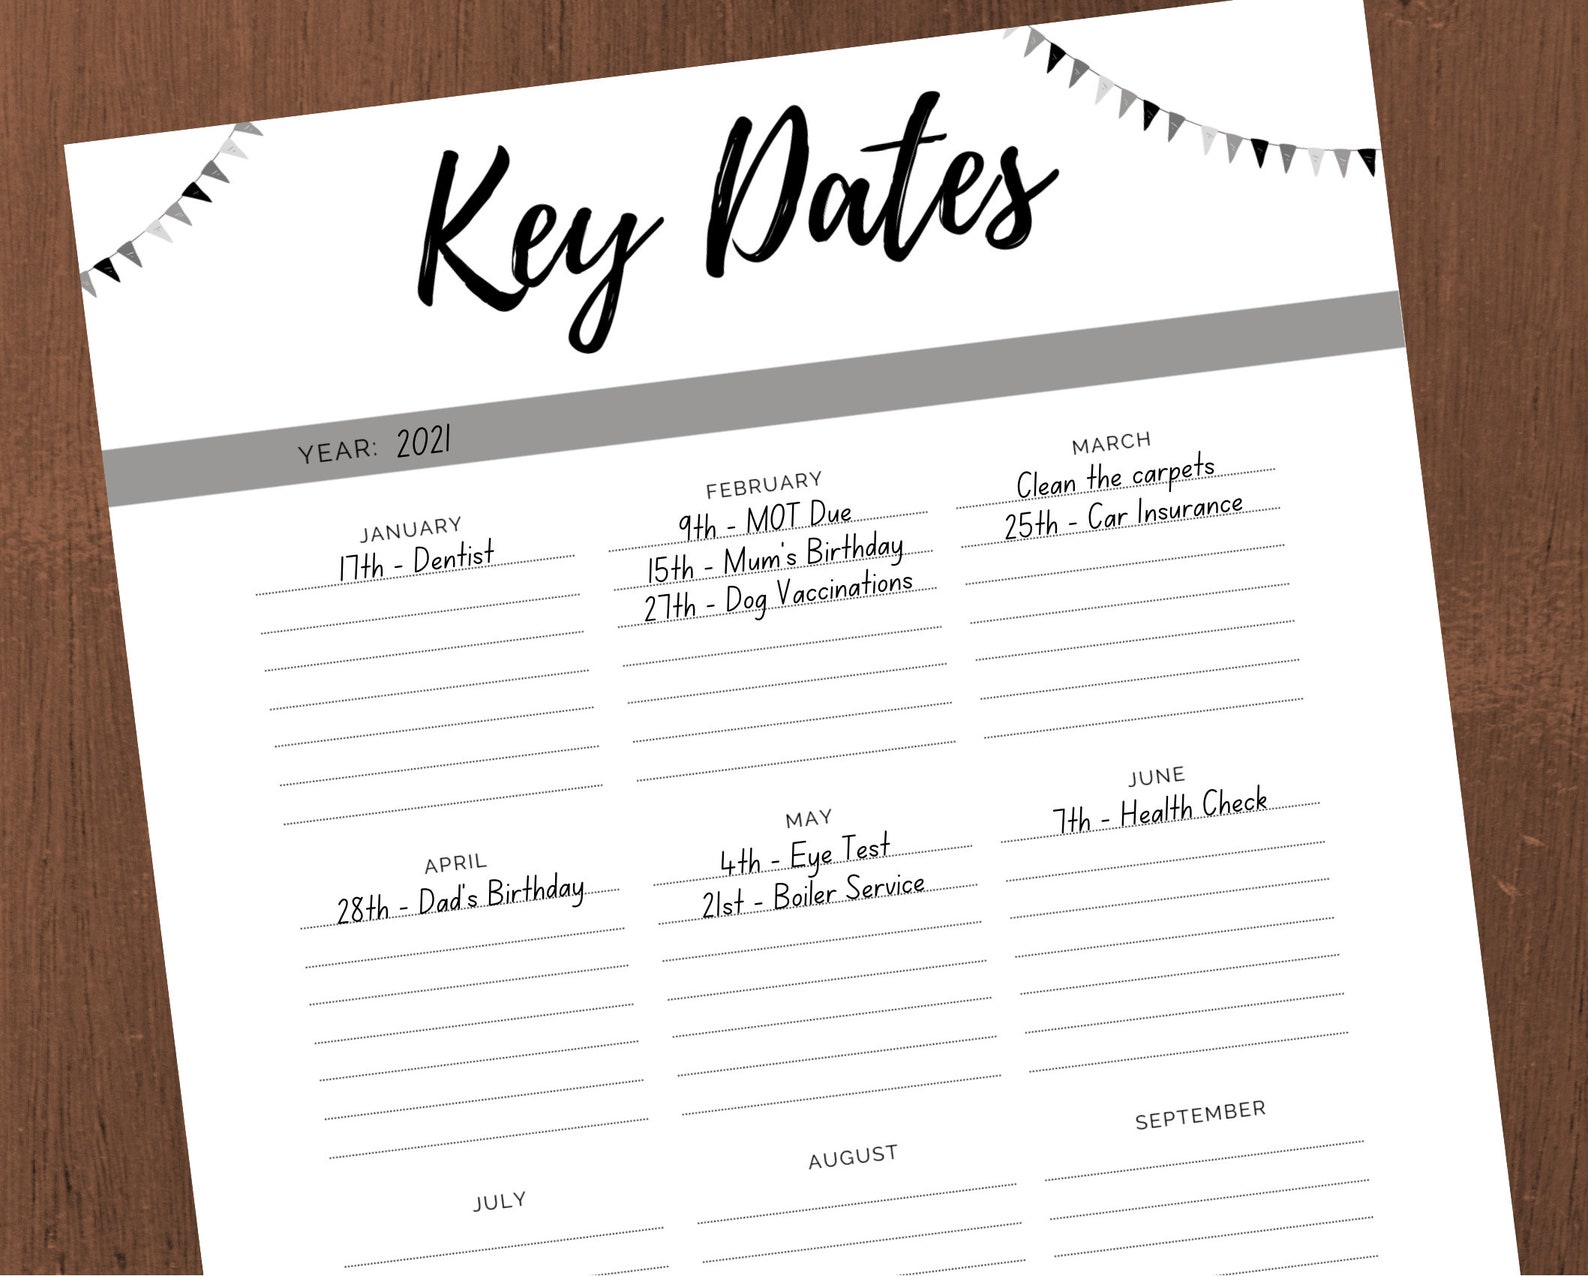 Key Dates
YEAR: 2021
JANUARY
17th - Dentist
FEBRUARY
9th - MOT Due
15th - Mum's Birthday
27th - Dog Vaccinations
MARCH
Clean the carpets
25th - Car Insurance
APRIL
28th - Dad's Birthday
MAY
4th - Eye Test
21st - Boiler Service
JUNE
7th - Health Check
JULY
AUGUST
SEPTEMBER